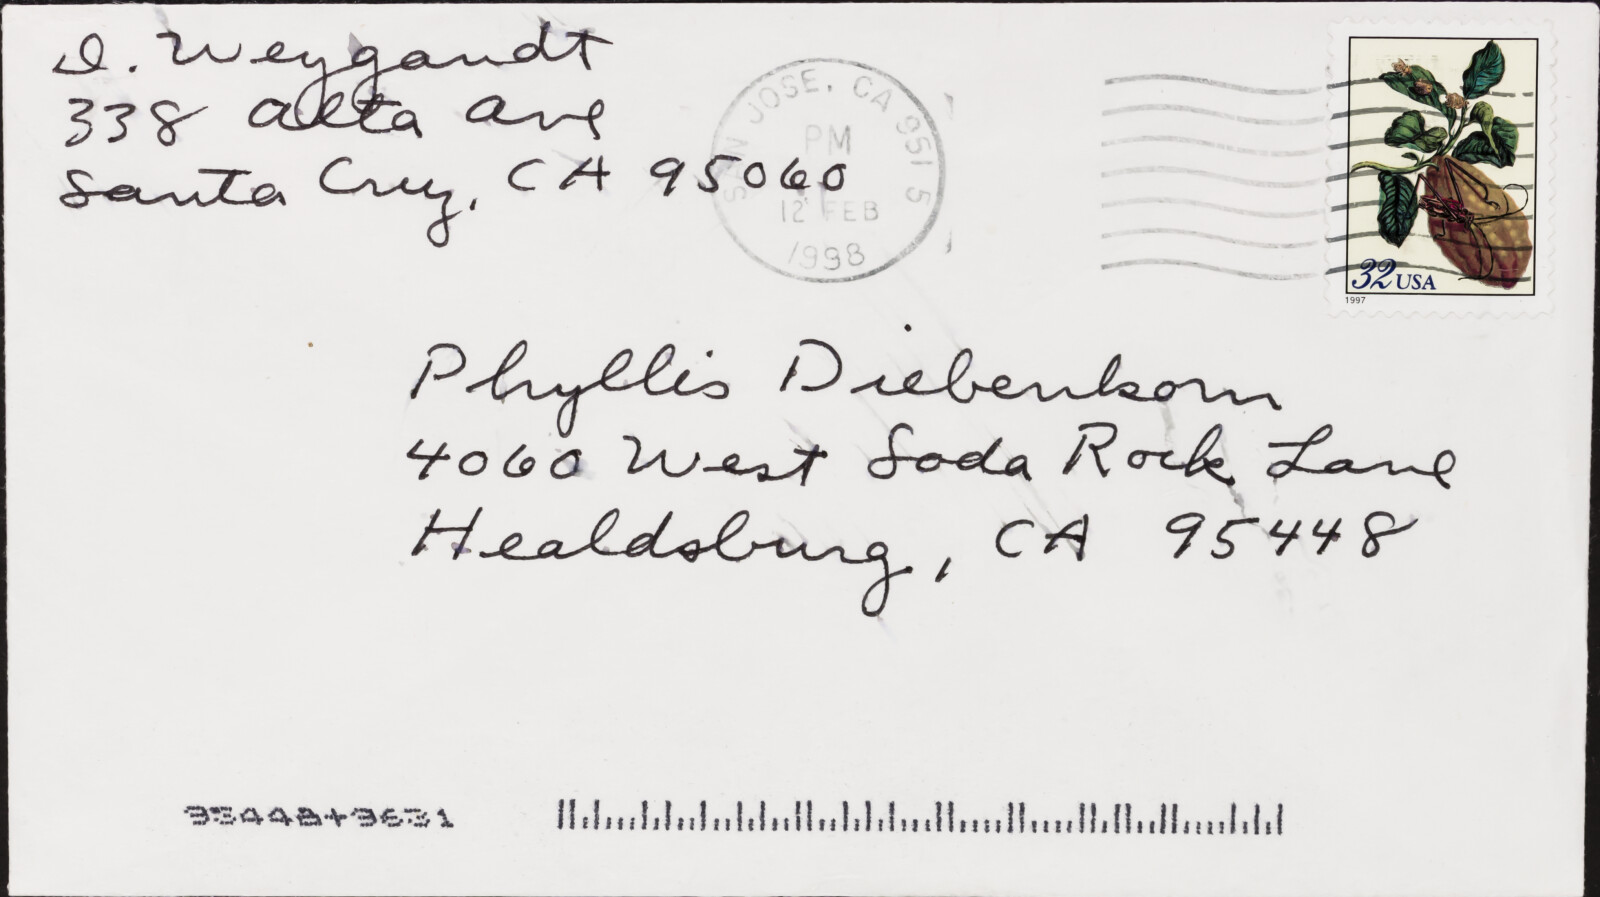 D. Weygandt
338 Alta Ave
Santa Cruz, CA 95060
SAN JOSE, CA 951 5
PM
12 FEB
1998
32 USA
1997
Phyllis Diebenkorn
4060 West Soda Rock Lane
Healdsburg, CA 95448
95448+9631